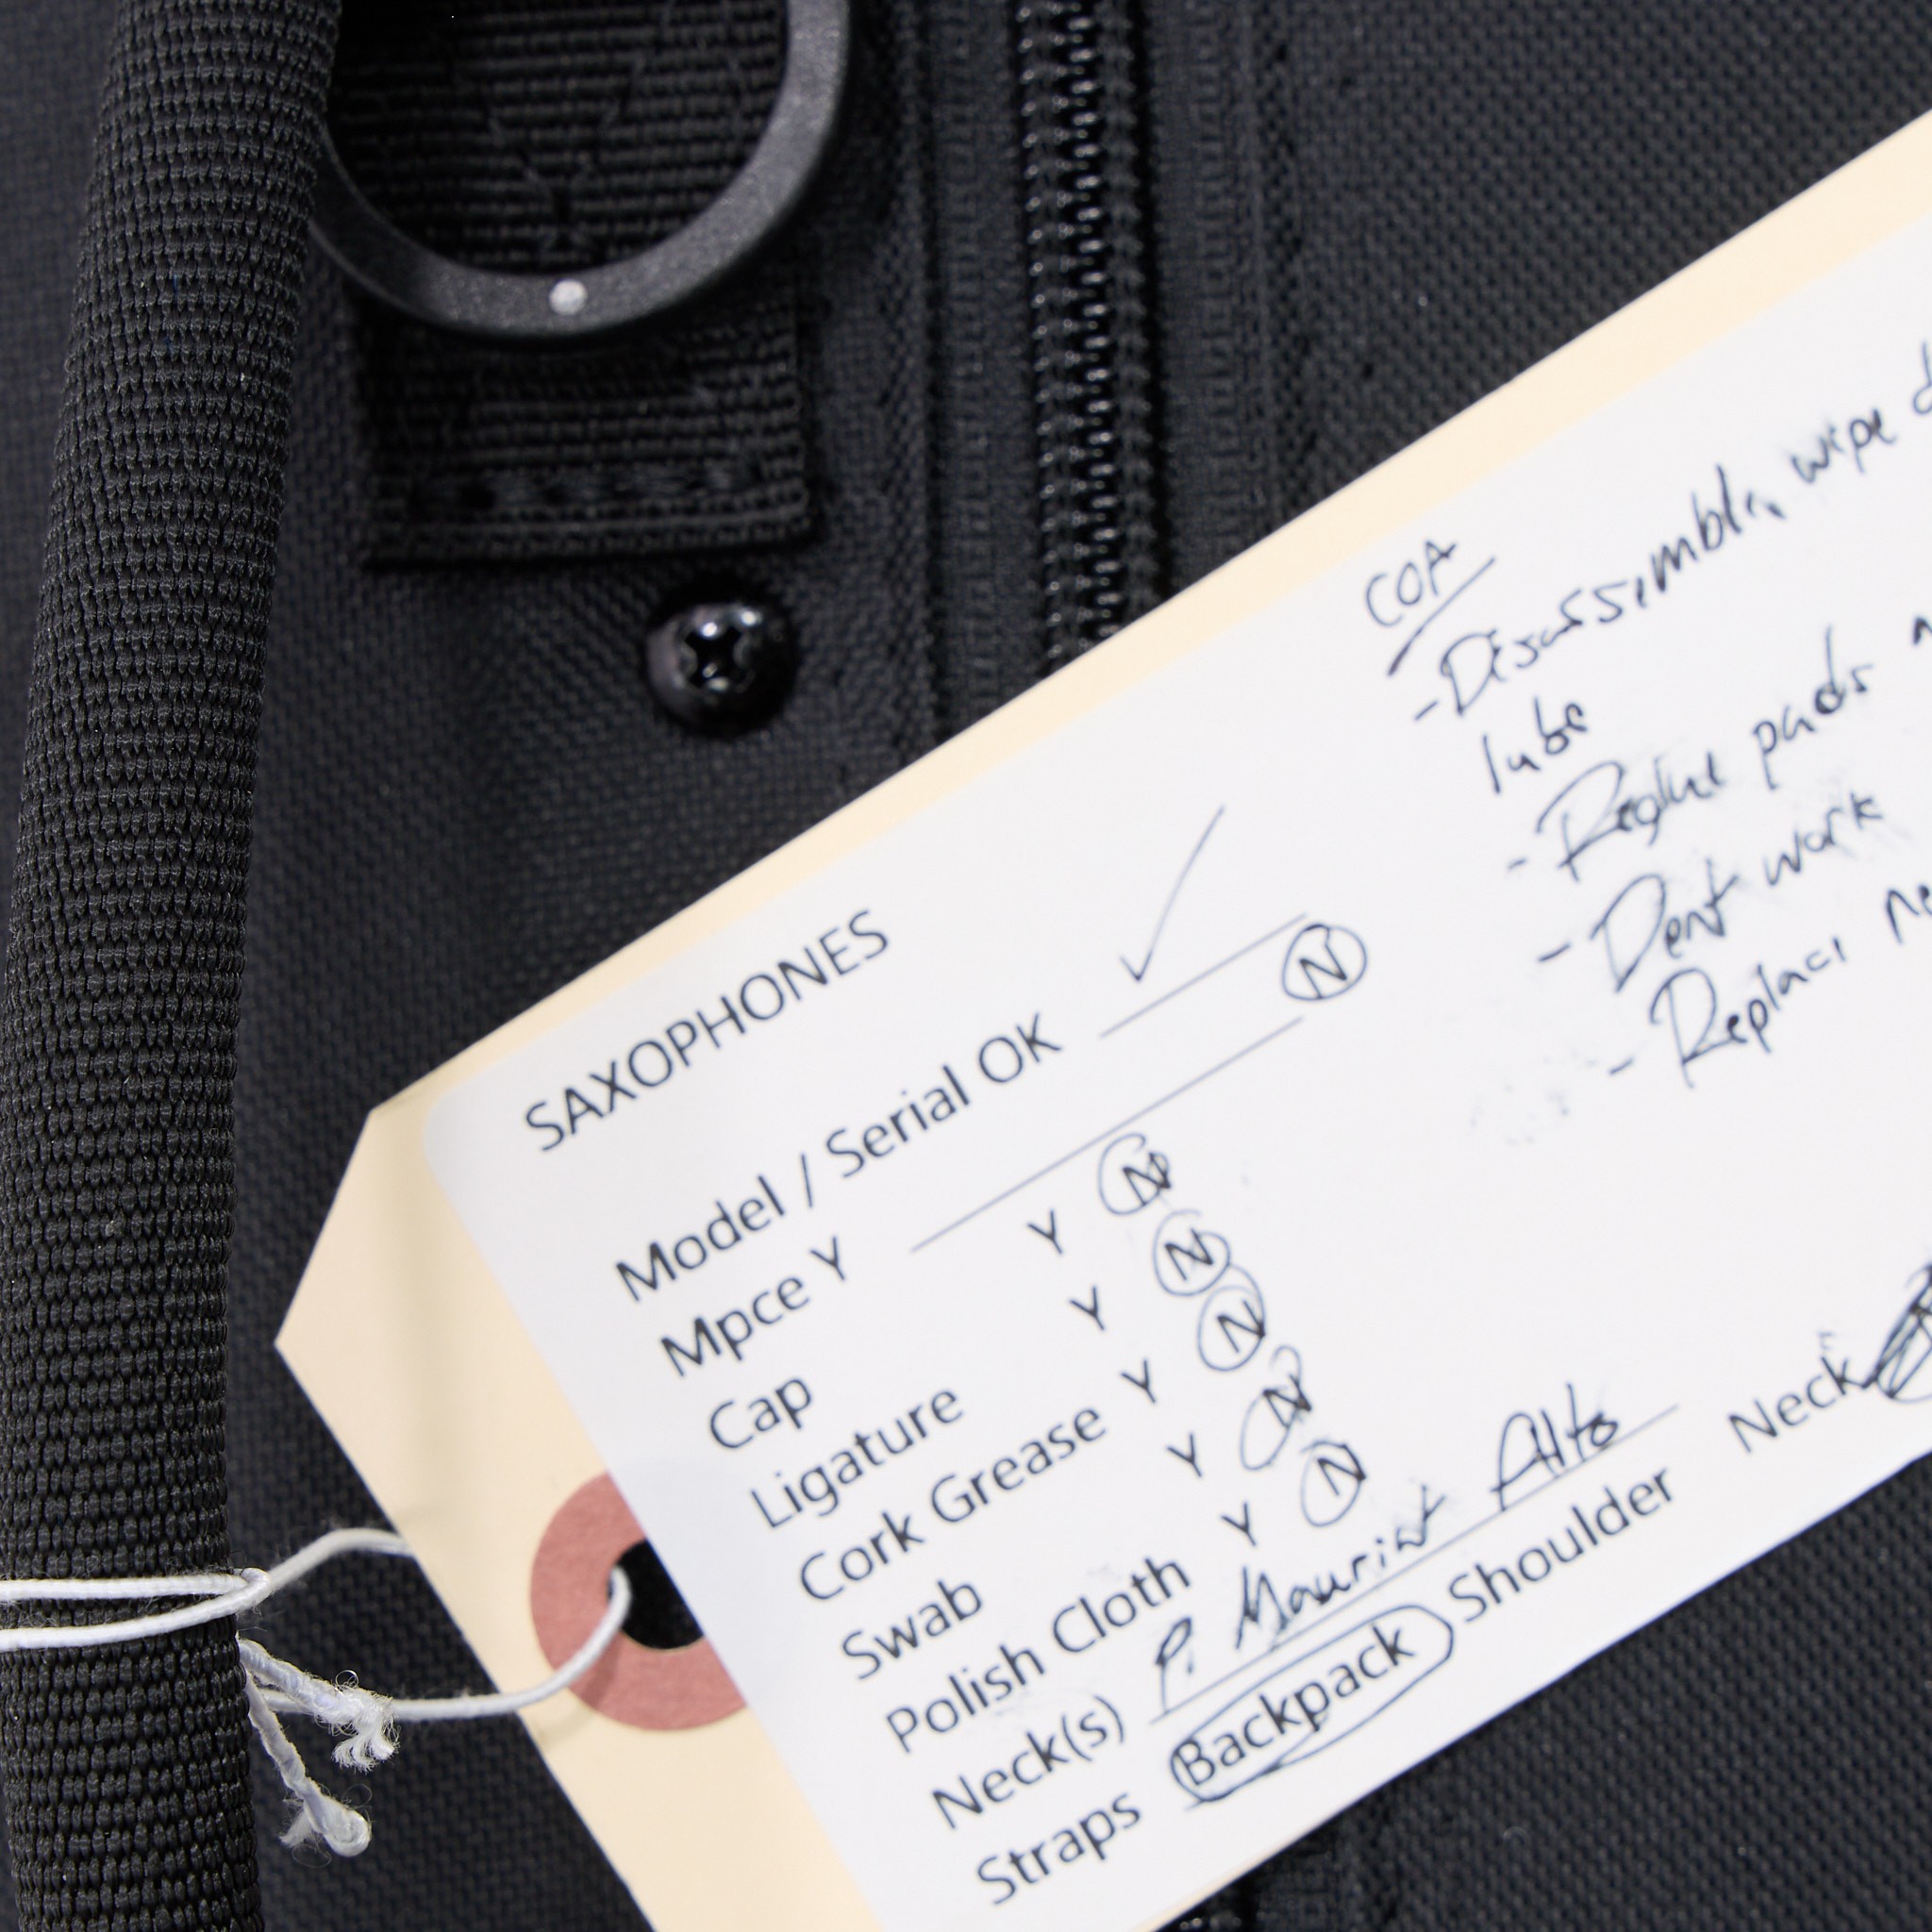 SAXOPHONES
Model / Serial OK ✓
Mpce Y N
Cap Y N
Ligature Y N
Cork Grease Y N
Swab Y N
Polish Cloth Y N
Neck(s) P. Mauriat Alto
Straps Backpack Shoulder Neck
COA
- Disassemble, wipe
lube
- pads
- Dent work
- Replace